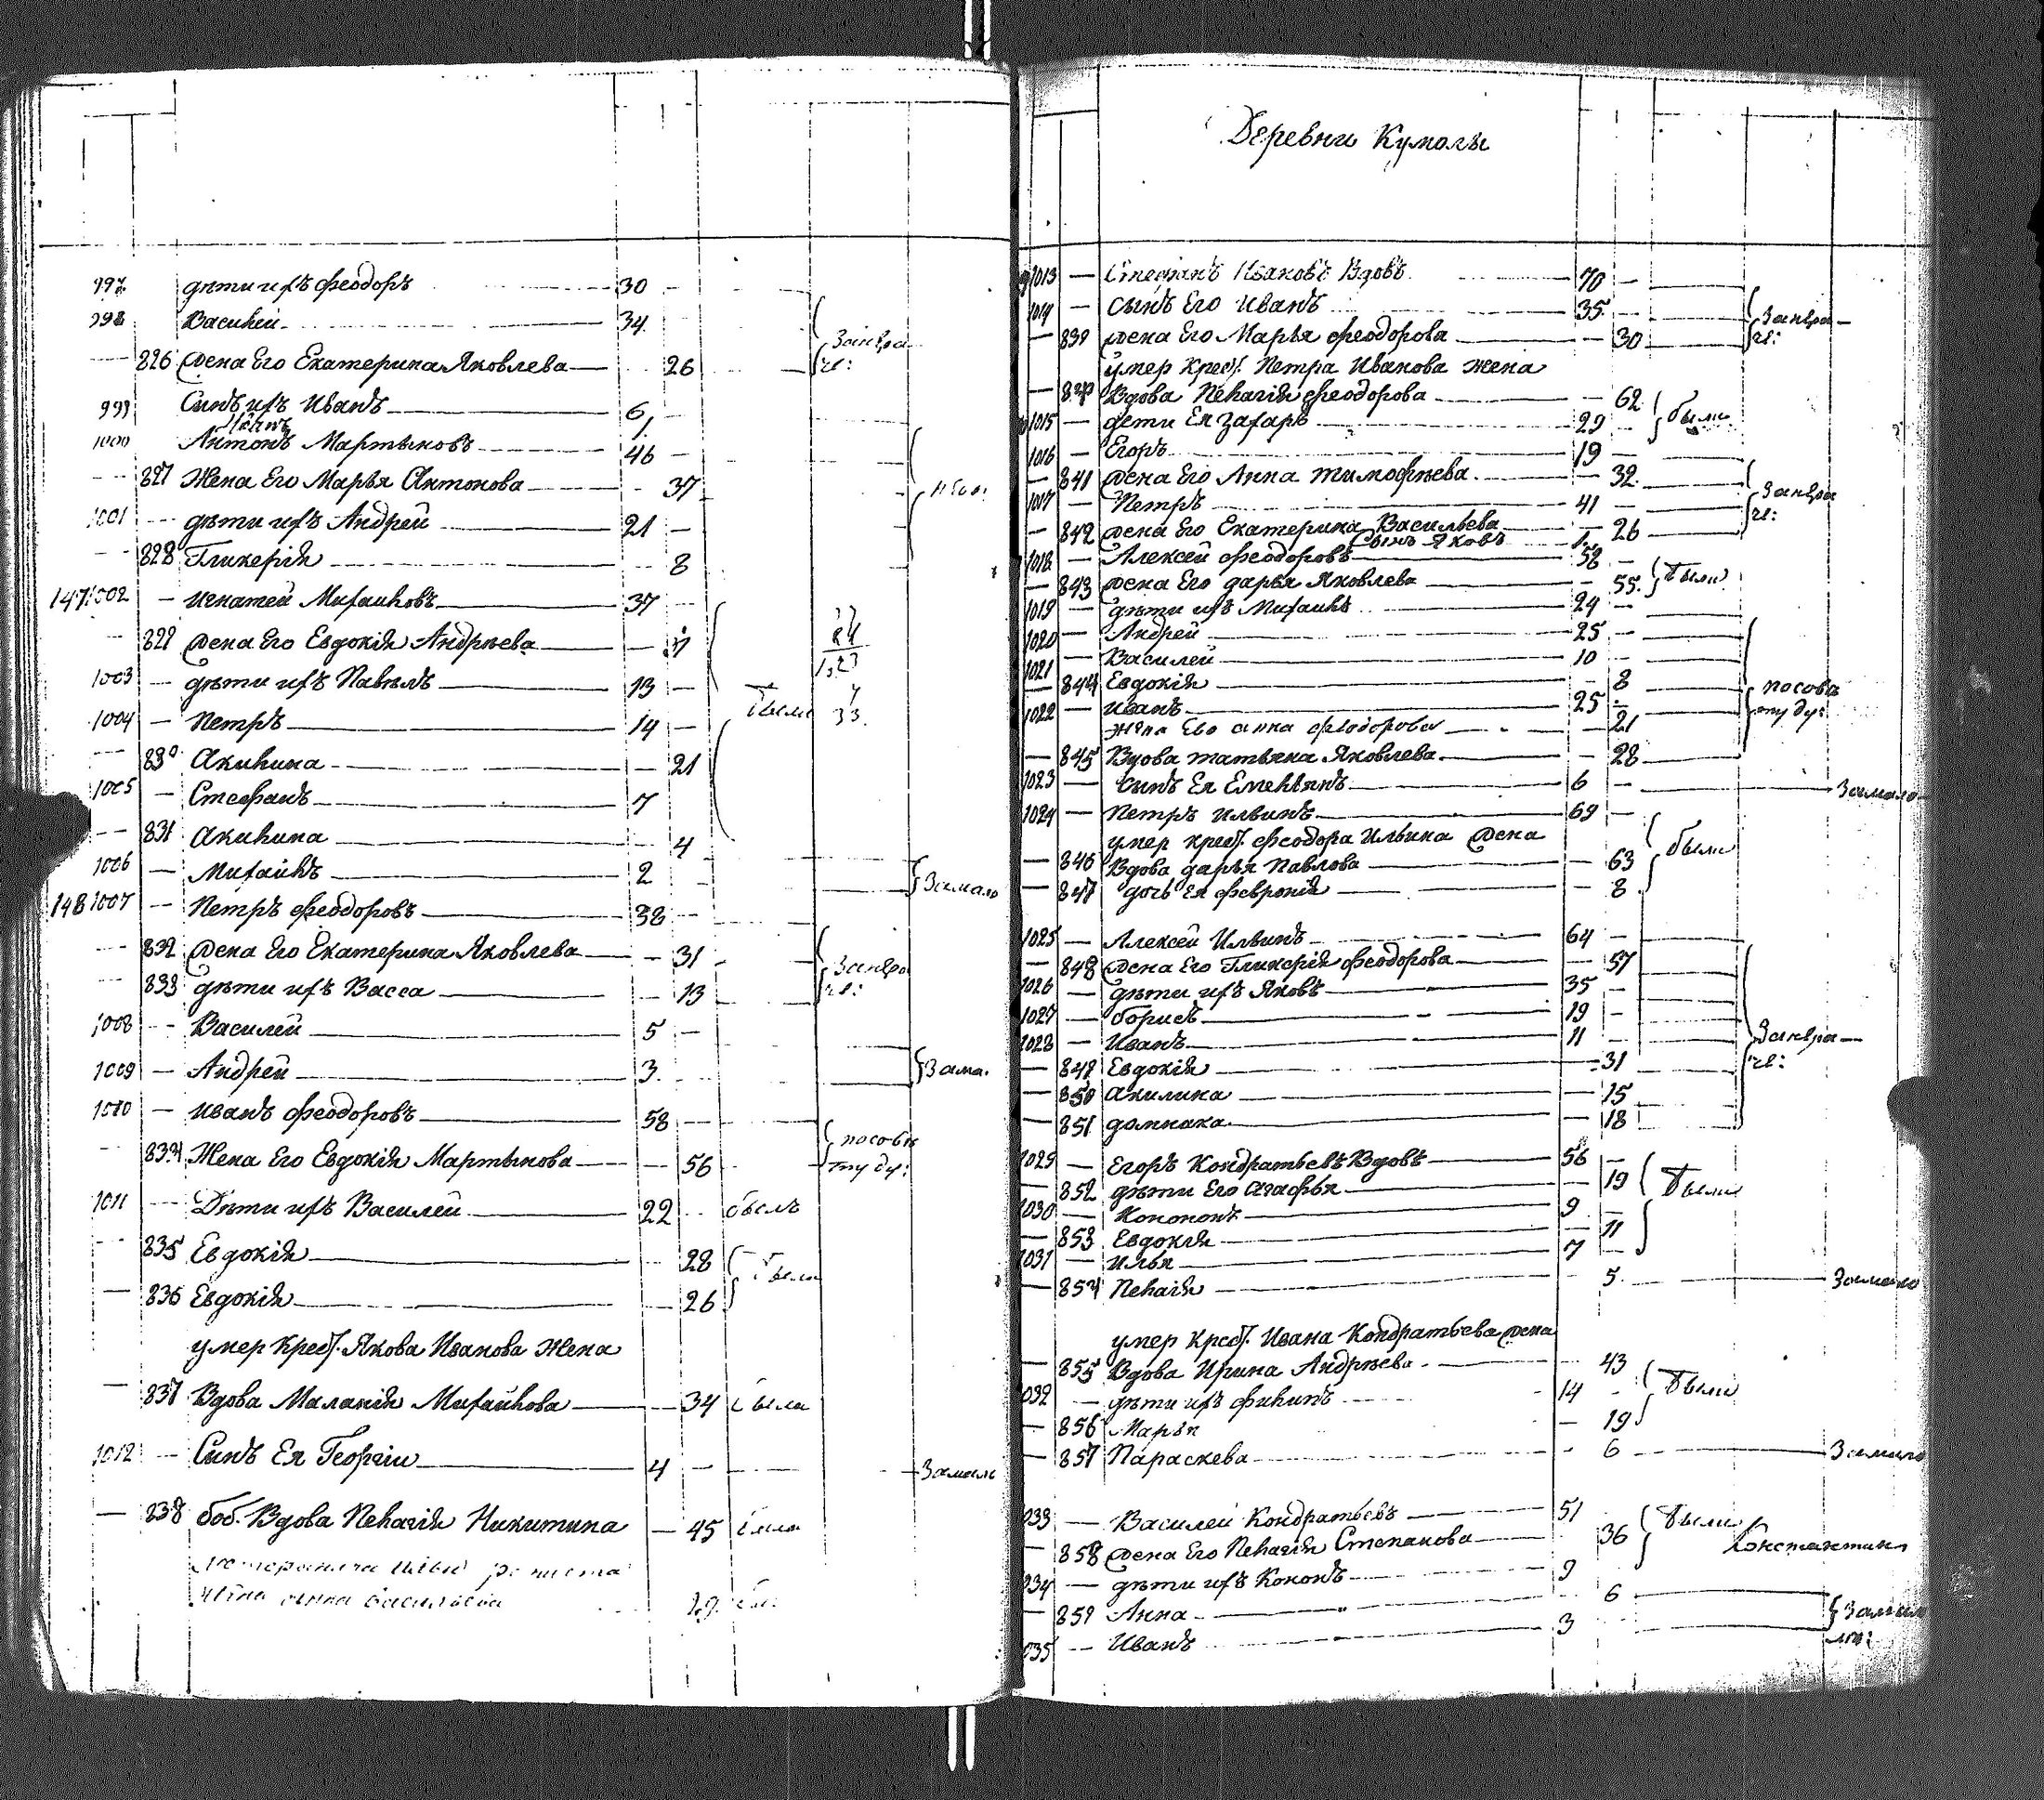 997 дѣти ихъ Феодоръ 30 —
998 Василей 34
826 жена Его Екатерина Яковлева 26
Занѣра
че:
999 Сынъ ихъ Иванъ 6
1
1000 Антонъ Мартыновъ 46 —
827 Жена Его Марья Антонова 37
1001 дѣти ихъ Андрей 21 —
828 Гликерія 8
147 1002 — Игнатей Михаиловъ 37
829 жена Его Евдокія Андрѣева —
1003 — дѣти ихъ Павелъ 13 —
1004 — Петръ 14 —
были
33
830 Акилина — 21
1005 — Стефанъ 7
831 Акилина 4
1006 — Михаилъ 2
Замало
148 1007 — Петръ Феодоровъ 38
832 жена Его Екатерина Яковлева — 31
833 дѣти ихъ Васса — 13
Занѣра
че:
1008 Василей 5 —
1009 — Андрей 3
Зама.
1010 — Иванъ Феодоровъ 58 —
834 Жена Его Евдокія Мартынова — 56
пособѣ
ту ду:
1011 Дѣти ихъ Василей 22 былъ
835 Евдокія 28
836 Евдокія 26
были
умер Крест. Якова Иванова Жена
837 Вдова Маланія Михайлова — 34 была
1012 Сынъ Ея Георгіи 4 — Замало
838 боб. Вдова Пелагія Никитина — 45 была
Анна Васильева
Деревни Кумолы
1013 — Стефанъ Ивановъ Вдовъ 70 —
1014 — Сынъ Его Иванъ 35
839 жена Его Марья Феодорова — 30
Занѣра
че:
умер Крест. Петра Иванова жена
Вдова Пелагія Феодорова — 62
1015 — дети Ея Захаръ 29
были
1016 — Егоръ 19 —
841 жена Его Анна Тимофѣева — 32
1017 — Петръ 41 —
842 жена Его Екатерина Васильева — 26
Занѣра
че:
Сынъ Яковъ 1
1018 — Алексей Феодоровъ 58 —
843 жена Его Дарья Яковлева — 55
были
1019 — дѣти ихъ Михаилъ 24 —
1020 — Андрей 25 —
1021 — Василей 10 —
844 Евдокія — 8
1022 — Иванъ 25
посова
ту ду:
жена Ево анна Феодорова — 21
845 Вдова Татьяна Яковлева — 28
1023 — сынъ Ея Емельянъ 6 — Замало
1024 — Петръ Ильинъ 69 —
умер крест. Феодора Ильина жена
846 Вдова Дарья Павлова — 63
847 дочь Ея Февронія — 8
были
1025 — Алексей Ильинъ 64 —
848 жена Его Гликерія Феодорова — 57
1026 — дѣти ихъ Яковъ 35 —
1027 — Борисъ 19 —
1028 — Иванъ 11 —
Занѣра
че:
Евдокія — 31
850 Акилина — 15
851 домника — 18
1029 — Егоръ Кондратьевъ Вдовъ 56 —
852 дѣти Его Агафья — 19
1030 — Кононъ 9 —
853 Евдокія — 11
1031 — Илья 7 —
были
854 Пелагія — 5 Замало
умер Крест. Ивана Кондратьева жена
855 Вдова Ирина Андрѣева — 43
1032 — дѣти ихъ Филипъ 14
856 Марья — 19
были
857 Параскева — 6 Замало
1033 — Василей Кондратьевъ 51
858 жена Его Пелагія Степанова 36
были
Константин
1034 — дѣти ихъ Кононъ 9
859 Анна 6
1035 — Иванъ 3